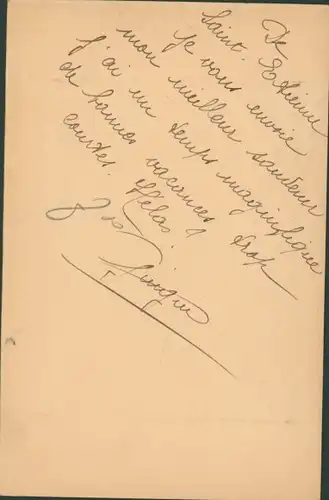 De
Saint-Etienne
je vous envoie
mon meilleur souvenir
j'ai un temps magnifique
de bonnes vacances trop
courtes. Hélas !